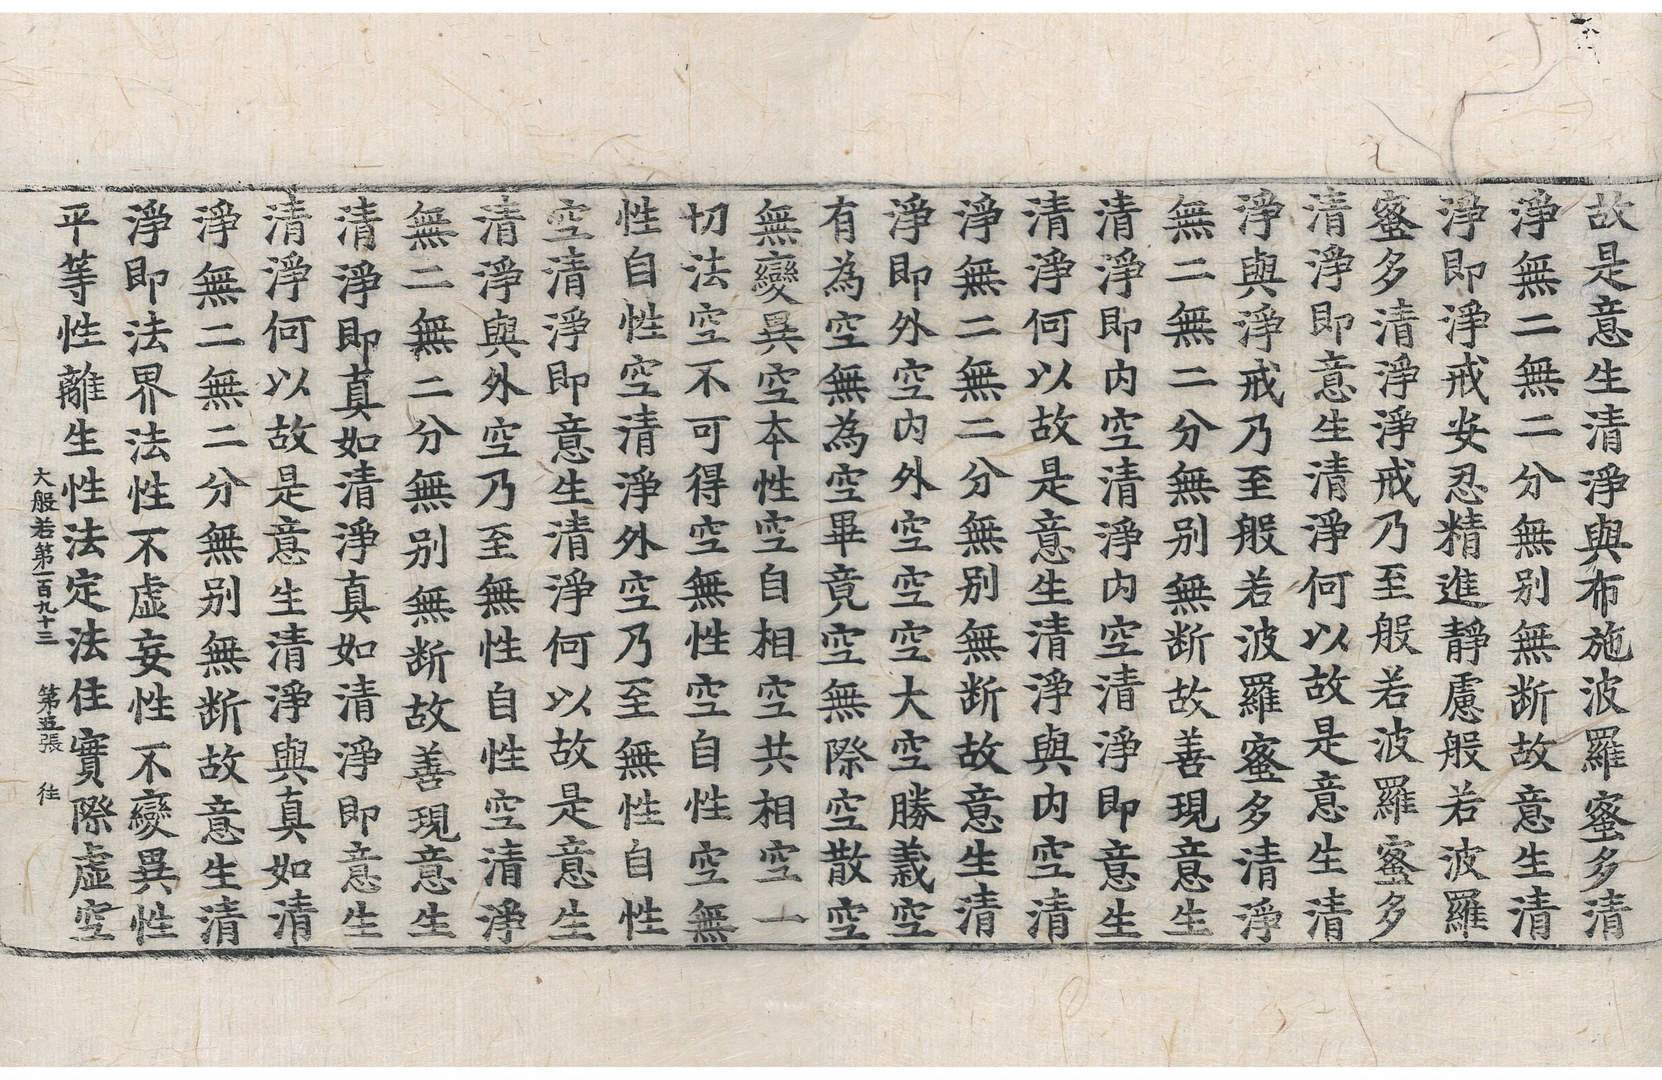 故是意生清淨與布施波羅蜜多清
淨無二無二分無別無断故意生清
淨即淨戒安忍精進靜慮般若波羅
蜜多清淨淨戒乃至般若波羅蜜多
清淨即意生清淨何以故是意生清
淨與淨戒乃至般若波羅蜜多清淨
無二無二分無別無断故善現意生
清淨即内空清淨内空清淨即意生
清淨何以故是意生清淨與内空清
淨無二無二分無別無断故意生清
淨即外空内外空空空大空勝義空
有為空無為空畢竟空無際空散空
無變異空本性空自相空共相空一
切法空不可得空無性空自性空無
性自性空清淨外空乃至無性自性
空清淨即意生清淨何以故是意生
清淨與外空乃至無性自性空清淨
無二無二分無別無断故善現意生
清淨即真如清淨真如清淨即意生
清淨何以故是意生清淨與真如清
淨無二無二分無別無断故意生清
淨即法界法性不虛妄性不變異性
平等性離生性法定法住實際虛空
大般若第一百九十三 第五張 往